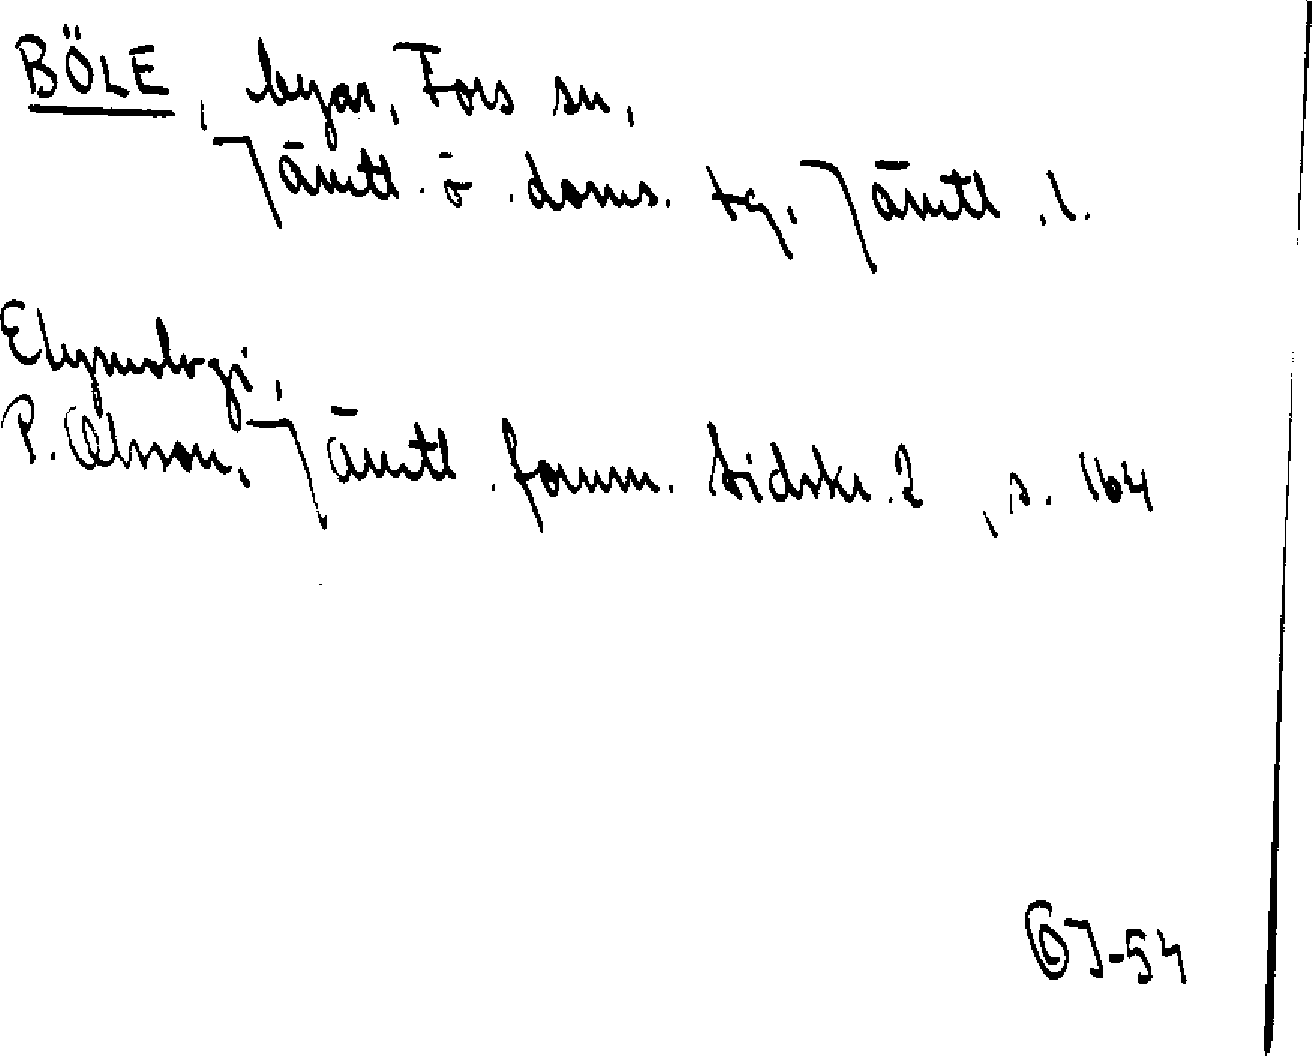 BÖLE, byar, Fors sn,
Jämtl. ö. doms. tg. Jämtl. l.
Etymologi,
P. Olsson, Jämtl. fornm. tidskr. 2, s. 164
ÖJ-54